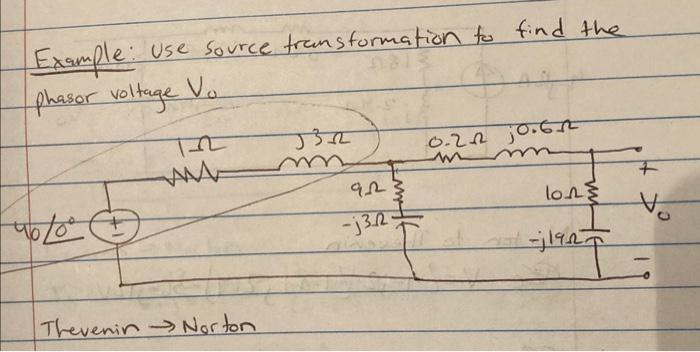 Example: Use source transformation to find the
phasor voltage Vo
1Ω j3Ω 0.2Ω j0.6Ω
+
9Ω 10Ω
40∠0° + - -j3Ω Vo
-j19Ω
-
Thevenin → Norton